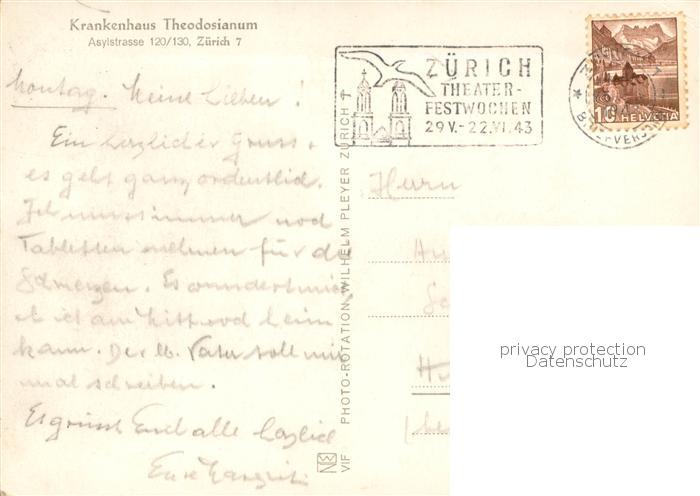 Krankenhaus Theodosianum
Asylstrasse 120/130, Zürich 7
Montag. Meine Lieben!
Ein herzlicher Gruss,
es geht ganz ordentlich.
Ich muss immer noch
Tabletten nehmen für die
Schmerzen. Es wundert mich
ob ich am Mittwoch heim
kann. Der lb. Vater soll mir
mal schreiben.
Es grüsst Euch alle herzlich
Eure
ZÜRICH
THEATER-
FESTWOCHEN
29.V.-22.VI.43
10 HELVETIA
PHOTO-ROTATION WILHELM PLEYER ZÜRICH
VIF
Herrn
privacy protection
Datenschutz